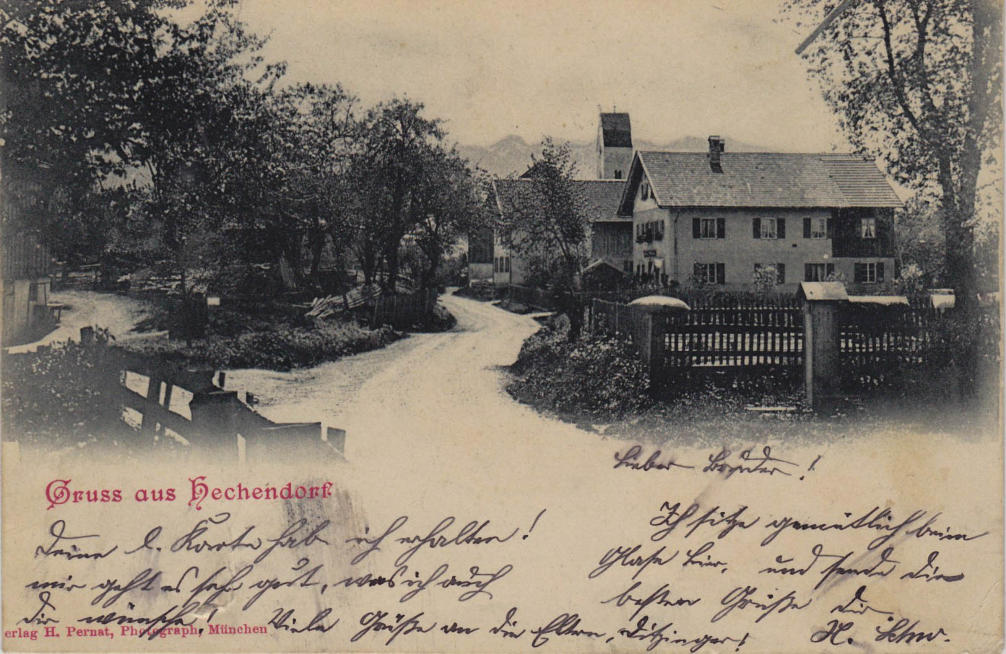 Gruss aus Hechendorf
Lieber Bruder!
Deine l. Karte hab ich erhalten!
mir geht es sehr gut, was ich auch
dir wünsche! Viele Grüße an die Eltern,
Ich sitze gemütlich beim
Glase Bier, und sende die
besten Grüße dir
erlag H. Pernat, Photograph, München